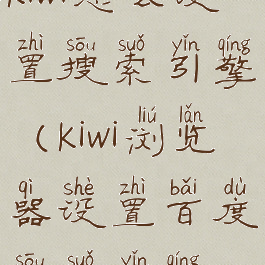 zhì sōu suǒ yǐn qíng
置搜索引擎
liú lǎn
(kiwi浏览
qì shè zhì bǎi dù
器设置百度
sōu suǒ yǐn qíng